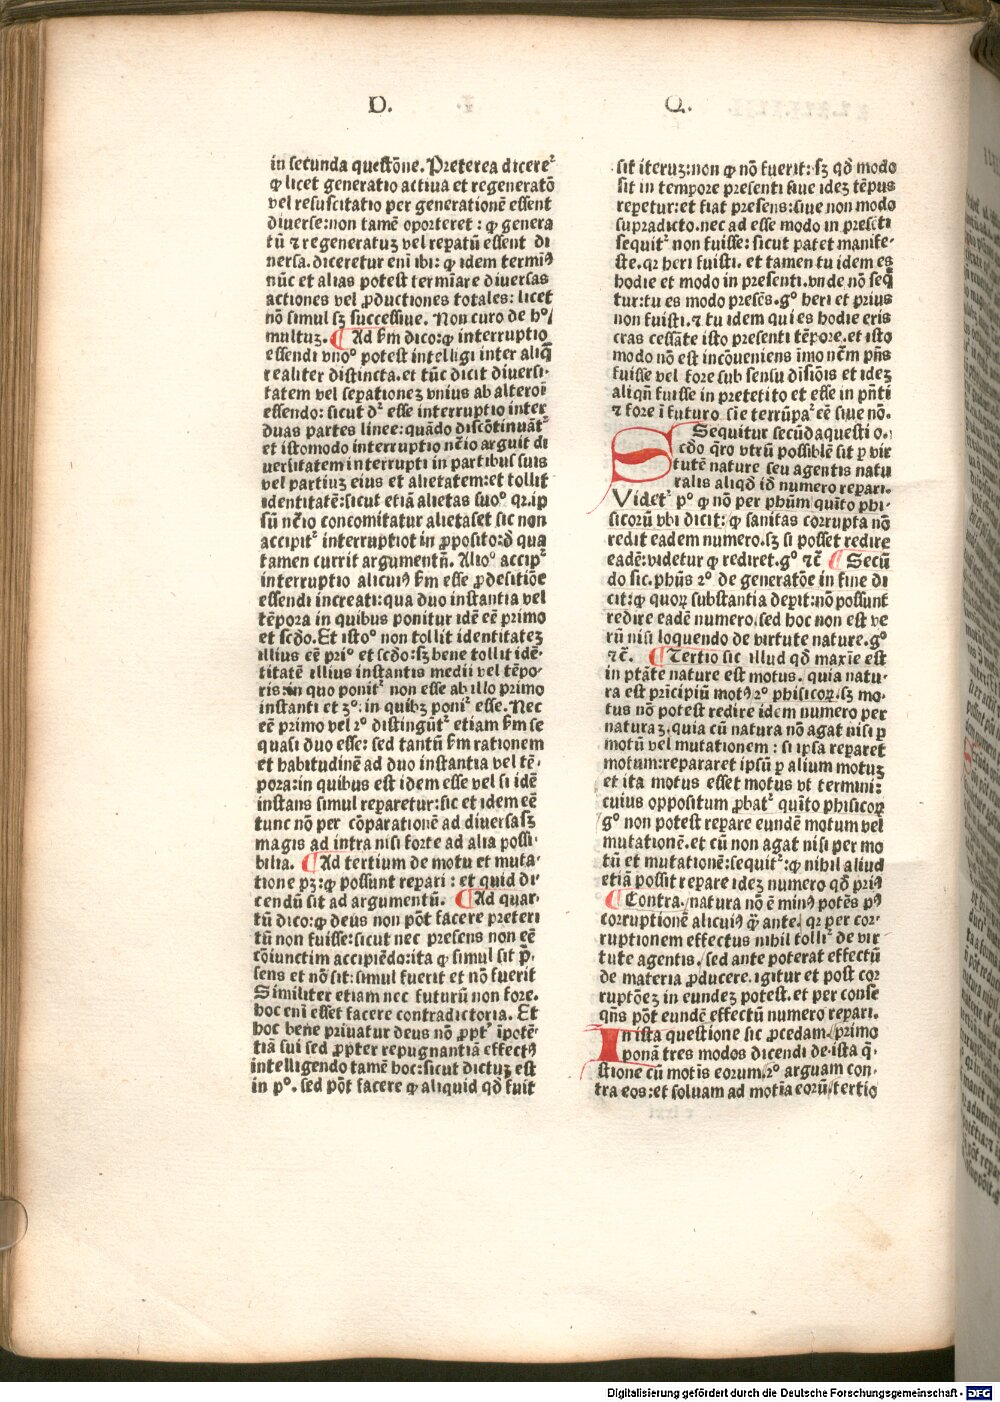 D.
Q.
in secunda questōne. Preterea dicereꝰ
ꝙ licet generatio actiua et regeneratō
vel resuscitatio per generationē essent
diuerse:non tamē oporteret : ꝙ genera
tū ⁊ regeneratuꝫ vel repatū essent di
uersa. diceretur eni ibi: ꝙ idem terminꝰ
nūc et alias potest termiare diuersas
actiones vel ꝓductiones totales: licet
nō simul sꝫ successiue. Non curo de hº/
multuꝫ. ¶ Ad ẜm dico:ꝙ interruptio
essendi vnoº potest intelligi inter aliq̄
realiter distincta. et tūc dicit diuersi-
tatem vel sepationeꝫ vnius ab alteroi
essendo: sicut dꝛ esse interruptio inter
duas partes linee: quādo discōtinuātꝛ
et istomodo interruptio nc̄io arguit di
uersitatem interrupti in partibus suis
vel partiuꝫ eius et alietatem:et tollit
identitatē:sicut etiā alietas suoº qꝛ.ip
sū nc̄io concomitatur alietas et sic non
accipitꝛ interruptiot in ꝓposito:d qua
tamen currit argumentū. Alioº accipꝛ
interruptio alicuiꝰ ẜm esse ꝓ desitiōe
essendi increati: qua duo instantia vel
tēpora in quibus ponitur idē eē primo
et scdo. Et istoº non tollit identitateꝫ
illius eē priº et scdo:sꝫ bene tollit idē-
titatē illius instantis medii vel tēpo-
ris:in quo ponitꝛ non esse ab illo primo
instanti et 3º: in quibꝫ poniꝛ esse. Nec
eē primo vel 2º distingūtꝛ etiam ẜm se
quasi duo esse: sed tantū ẜm rationem
et habitudinē ad duo instantia vel tē-
pora:in quibus est idem esse vel si idē
instans simul reparetur:sic et idem eē
tunc nō per cōparationē ad diuersasꝫ
magis ad intra nisi forte ad alia possi-
bilia. ¶ Ad tertium de motu et muta-
tione pꝫ:ꝙ possunt repari : et quid di-
cendū sit ad argumentū. ¶ Ad quar-
tū dico:ꝙ deus non pōt facere preteri
tū non fuisse: sicut nec presens non eē
cōiunctim accipiēdo:ita ꝙ simul sit p̄-
sens et nō sit: simul fuerit et nō fuerit
Similiter etiam nec futurū non fore.
hoc eni esset facere contradictoria. Et
hoc bene priuatur deus nō ꝓptꝛ ipotē-
tiā sui sed ꝓpter repugnantiā effectꝰ
intelligendo tamē hoc: sicut dictuꝫ est
in pº. sed pōt facere ꝙ aliquid qd̄ fuit
sit iteruꝫ:non ꝙ nō fuerit: sꝫ qd̄ modo
sit in tempore presenti siue ideꝫ tēpus
repetur: et fiat presens: siue non modo
supradicto. nec ad esse modo in presēti
sequitꝛ non fuisse: sicut patet manife-
ste. qꝛ heri fuisti. et tamen tu idem es
hodie et modo in presenti. vnde nō seq̄
tur:tu es modo presēs. gº heri et prius
non fuisti. ⁊ tu idem qui es hodie eris
cras cessāte isto presenti tēpore. et isto
modo nō est incōueniens imo nc̄m pn̄s
fuisse vel fore sub sensu diuisiōis et ideꝫ
aliqn̄ fuisse in preterito et esse in pn̄ti
⁊ fore i futuro sie terrūpaꝛ eē siue nō.
Sequitur secūda questi o.
cdo q̄ro vtrū possibile sit ꝑ vir
tutē nature seu agentis natu
ralis aliqd̄ id̄ numero repari.
Videtꝛ pº ꝙ nō per phūm quīto phi-
sicorū vbi dicit: ꝙ sanitas corrupta nō
redit eadem numero. sꝫ si posset redire
eadē: videtur ꝙ rediret. gº ⁊c̄ ¶ Secū
do sic. phūs 2º de generatōe in fine di
cit:ꝙ quoꝝ substantia depit: nō possunt
redire eadē numero. sed hoc non est ve
rū nisi loquendo de virtute nature. gº
⁊c̄. ¶ Tertio sic illud qd̄ maxie est
in ptāte nature est motus. quia natu-
ra est pricipiū motꝰ 2º phisicoꝝ. sꝫ mo-
tus nō potest redire idem numero per
naturaꝫ. quia cū natura nō agat nisi ꝑ
motū vel mutationem : si ipsa reparet
motum: repararet ipsū ꝑ alium motuꝫ
et ita motus esset motus vt termini:
cuius oppositum ꝓbatꝛ quīto phisicoꝝ
gº non potest repare eundē motum vel
mutationē. et cū non agat nisi per mo
tū et mutationē:sequitꝛ:ꝙ nihil aliud
etiā possit repare ideꝫ numero qd̄ priꝰ
¶ Contra. natura nō ē minꝰ potēs pꝰ
corruptionē alicuiꝰ q̄ ante. qꝛ per cor-
ruptionem effectus nihil tolliꝛ de vir
tute agentis. sed ante poterat effectū
de materia ꝓducere. igitur et post cor
ruptōeꝫ in eundeꝫ potest. et per conse
qn̄s pōt eundē effectū numero repari.
In ista questione sic ꝓcedam. primo
ponā tres modos dicendi de ista q̄-
stione cū motiīs eorum. 2º arguam con-
tra eos: et soluam ad motiīa eorū. tertio
Digitalisierung gefördert durch die Deutsche Forschungsgemeinschaft - DFG